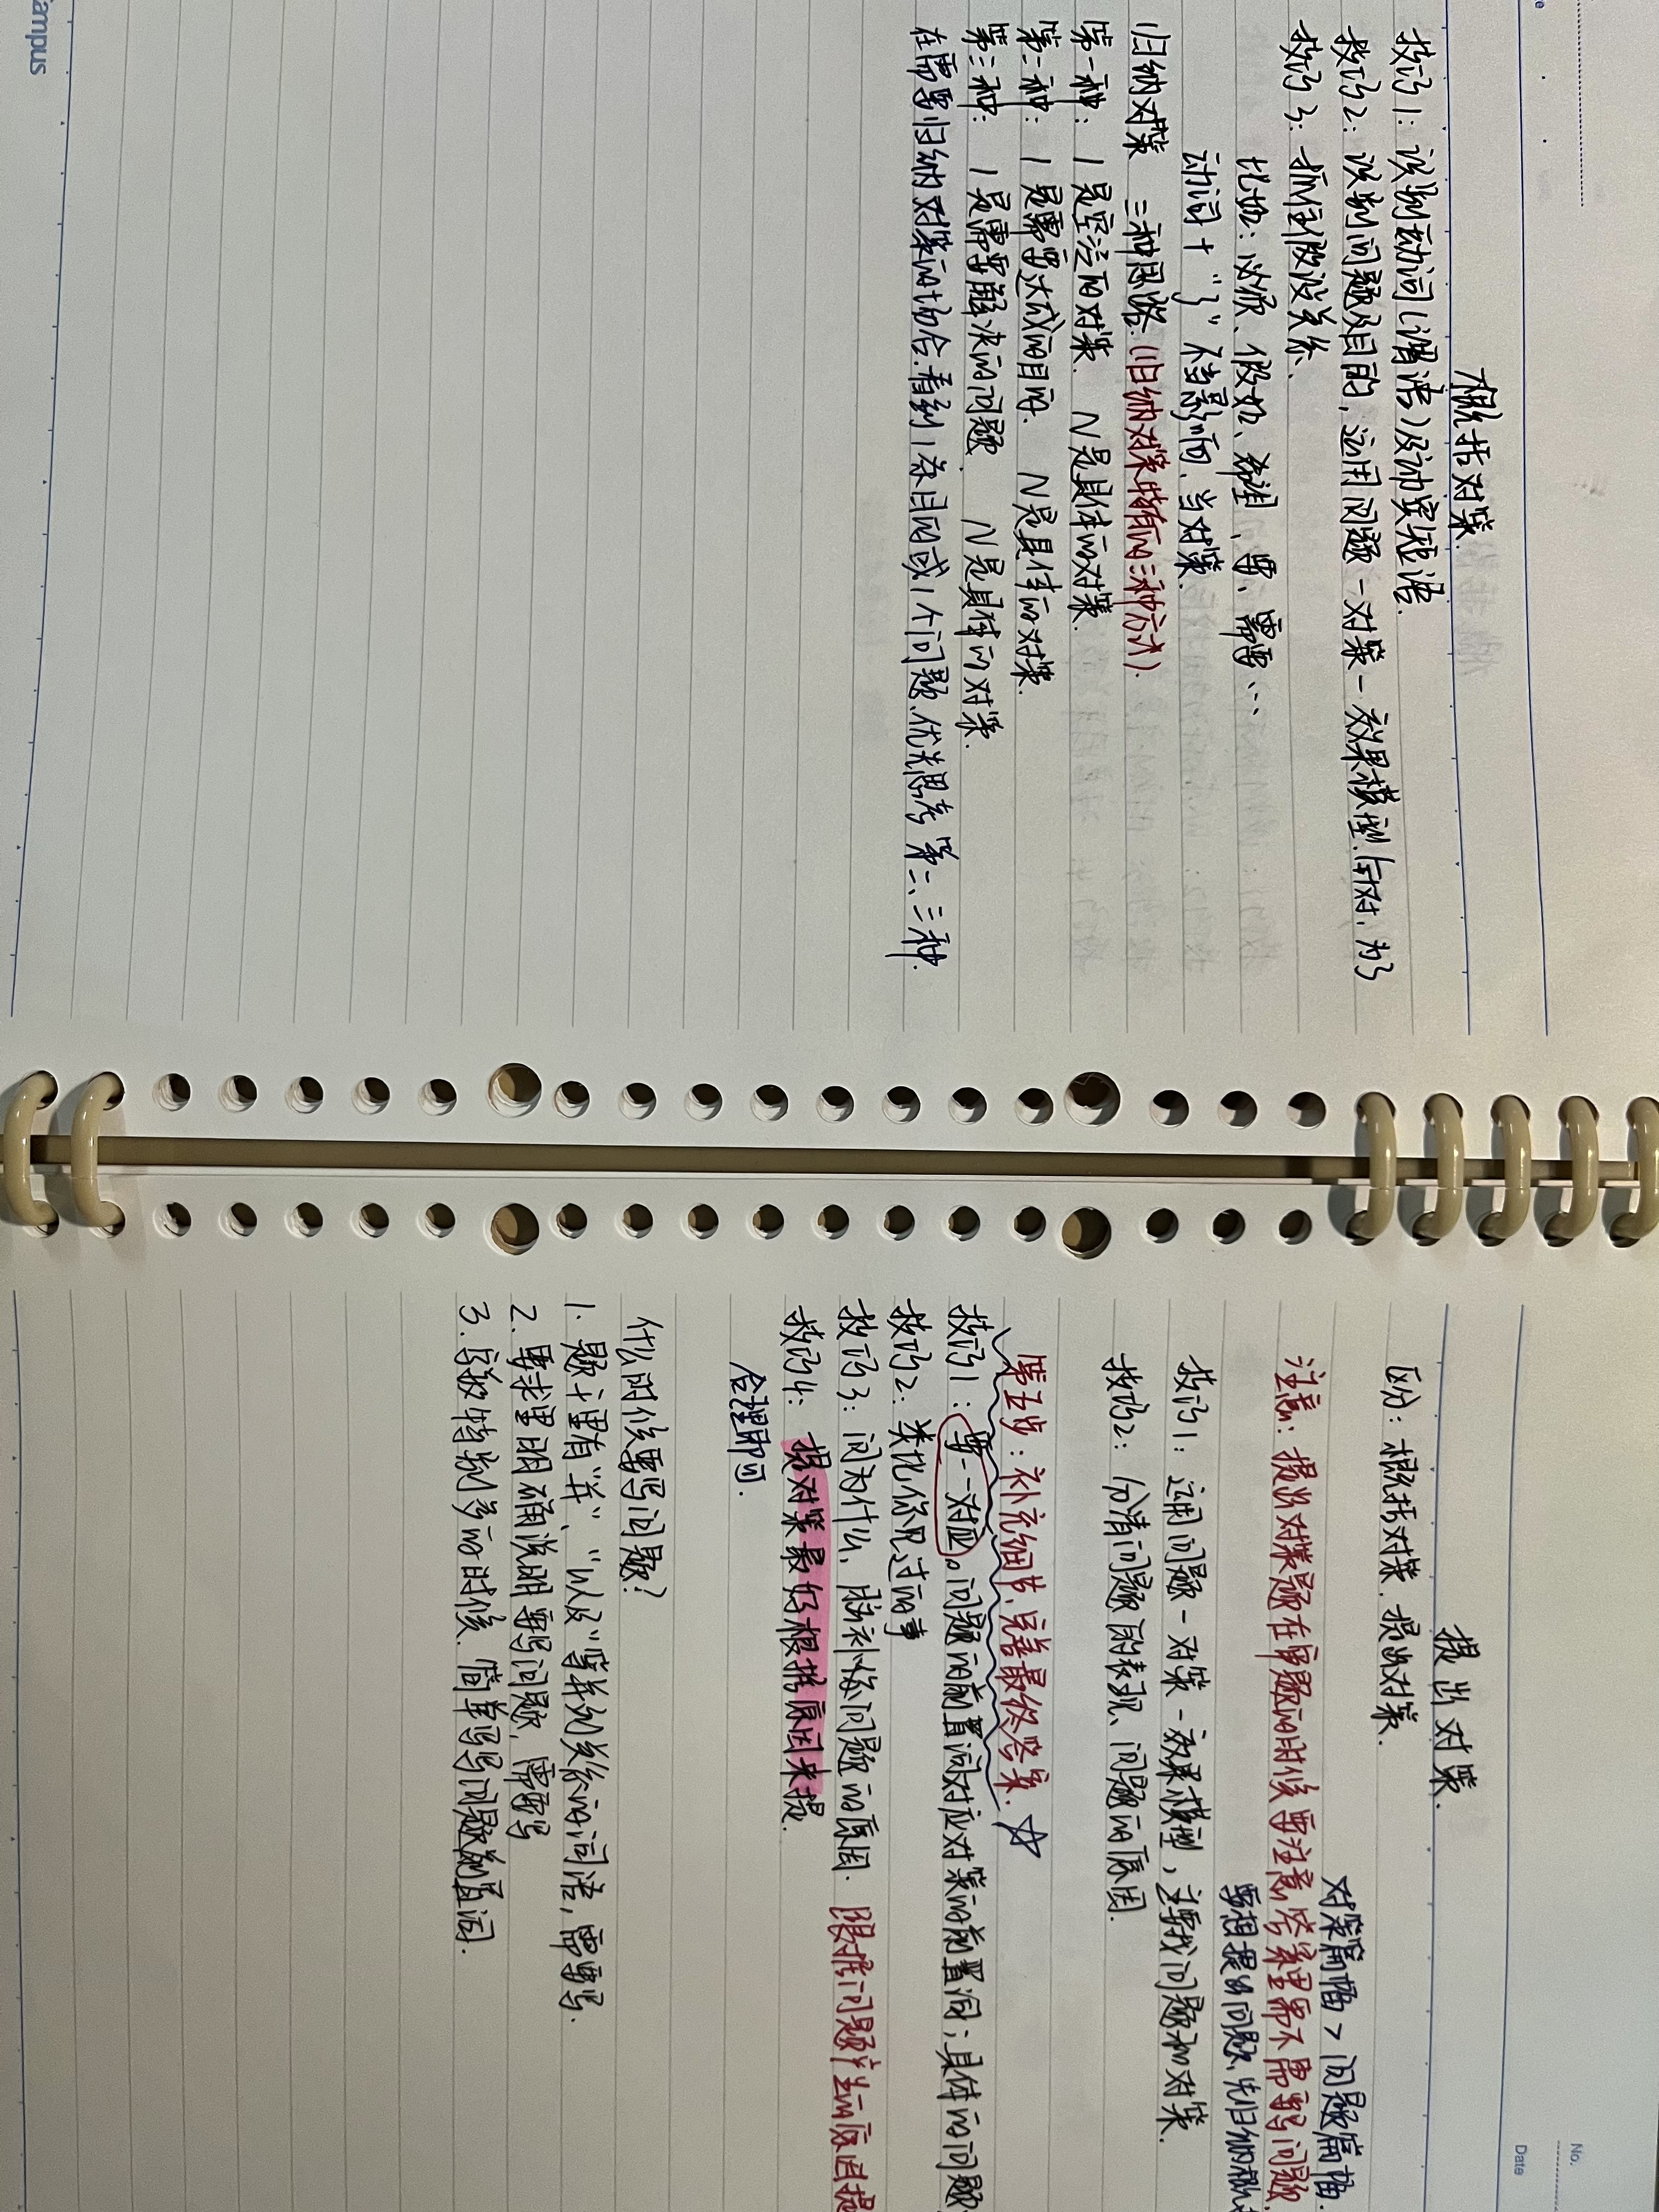 概括对策.
技巧1: 识别动词(谓语)及动宾短语.
技巧2: 识别问题及目的, 运用问题-对策-效果模型. 针对, 为了
技巧3: 抓住假设关系.
比如: 必须、假如、希望、要、需要…
动词+"了" 不当影响, 当对策.
归纳对策 三种思路. (归纳对策特有的三种方式).
第一种: 1是空泛的对策. N是具体的对策.
第二种: 1是需要达成的目的. N是具体的对策.
第三种: 1是需要解决的问题. N是具体的对策.
在需要归纳对策的场合. 看到1条目的或1个问题, 优先思考第二、三种.
Campus
No.
Date
提出对策.
对策篇幅 > 问题篇幅.
区分: 概括对策. 提出对策.
注意: 提出对策题在审题的时候要注意, 答案里需不需要写问题.
要想提出问题, 先归纳概括
技巧1: 运用问题-对策-效果模型, 主要找问题和对策.
技巧2: 分清问题的表现、问题的原因.
第五步: 补充细节, 完善最终答案. ☆
技巧1: 要一一对应。问题的前置词对应对策的前置词; 具体的问题
技巧2: 类比你见过的事
技巧3: 问为什么, 脑补你问题的原因. 跟据问题产生的原因提
技巧4: 提对策最好根据原因来提.
合理即可.
什么时候要写问题?
1. 题干里有"并"、"以及"等并列关系的词语, 需要写.
2. 要求里明确说明要写问题, 需要写
3. 字数特别多的时候. 简单写写问题前置词.